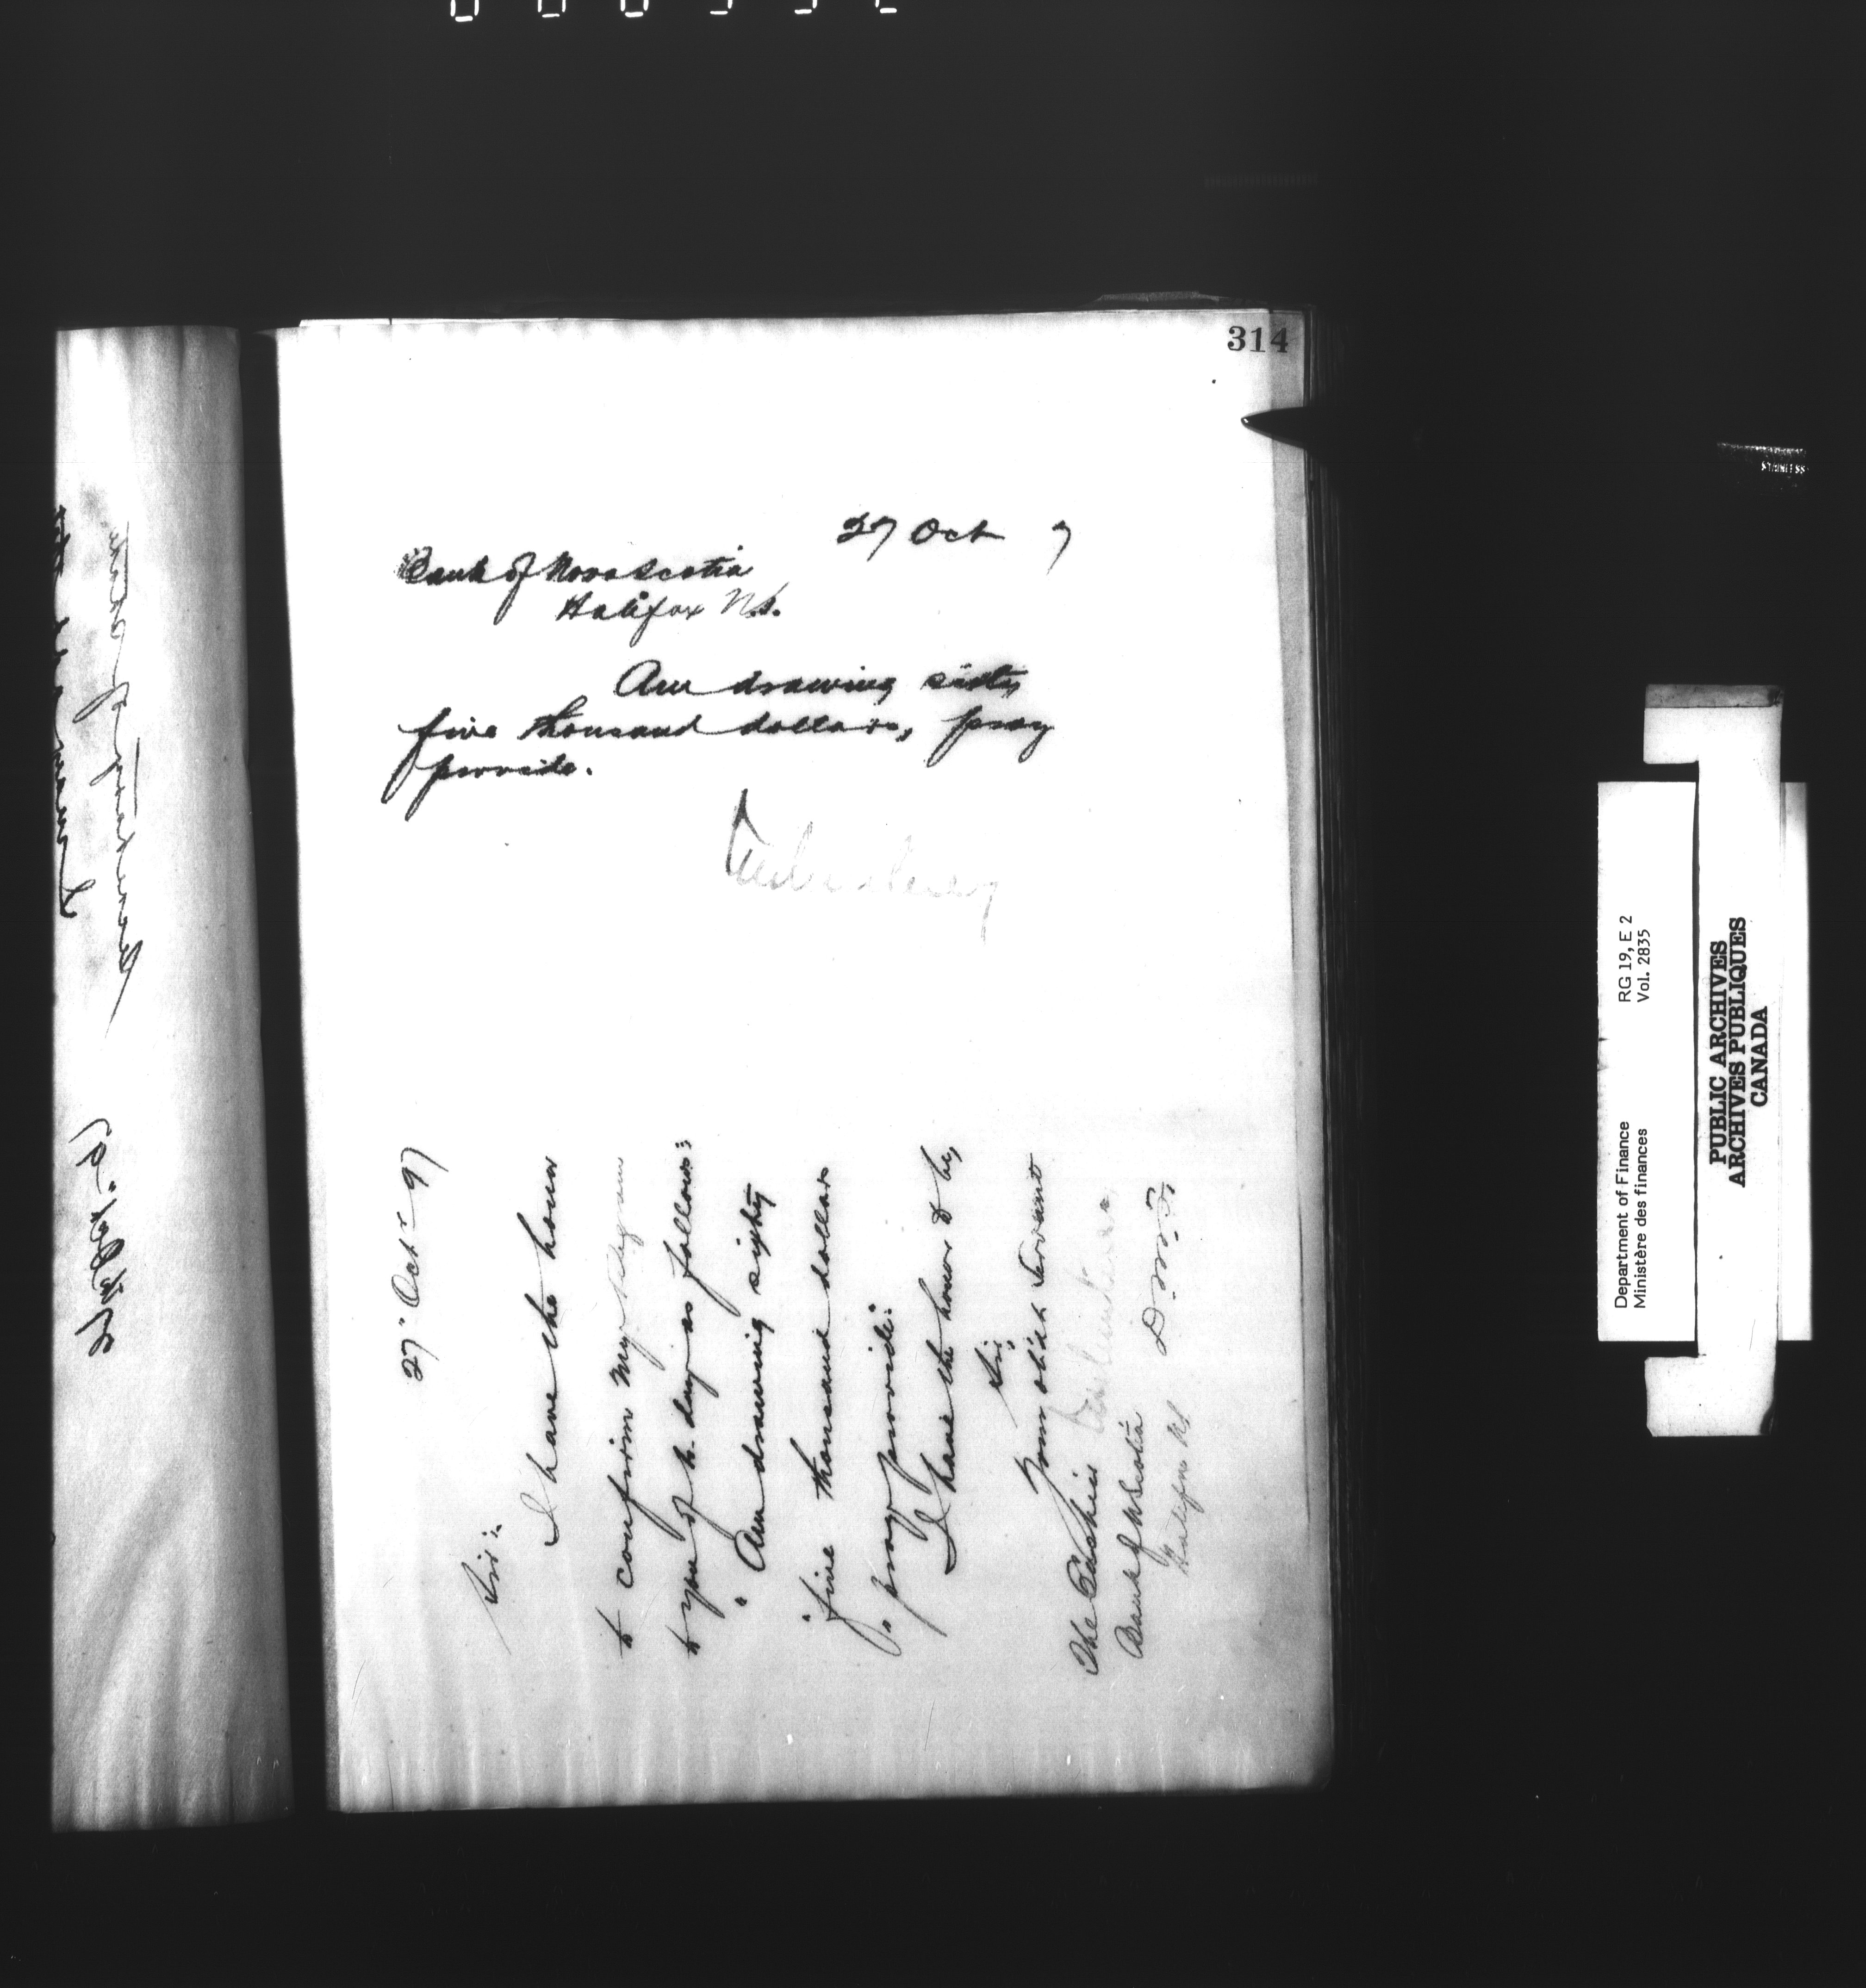 314
27 Oct 7
Bank of Nova Scotia
Halifax N.S.
Am drawing sixty
five thousand dollars, pray
provide.
27" Octr 97
Sir:
I have the honor
to confirm my telegram
to you of to-day as follows:
" Am drawing sixty
" five thousand dollars
" pray provide:"
I have the honor to be,
Sir,
Your obdt servant
The Cashier
Bank of N Scotia
Halifax NS
D.M.F.
Department of Finance RG 19, E 2
Ministère des finances Vol. 2835
PUBLIC ARCHIVES
ARCHIVES PUBLIQUES
CANADA
STAINLESS